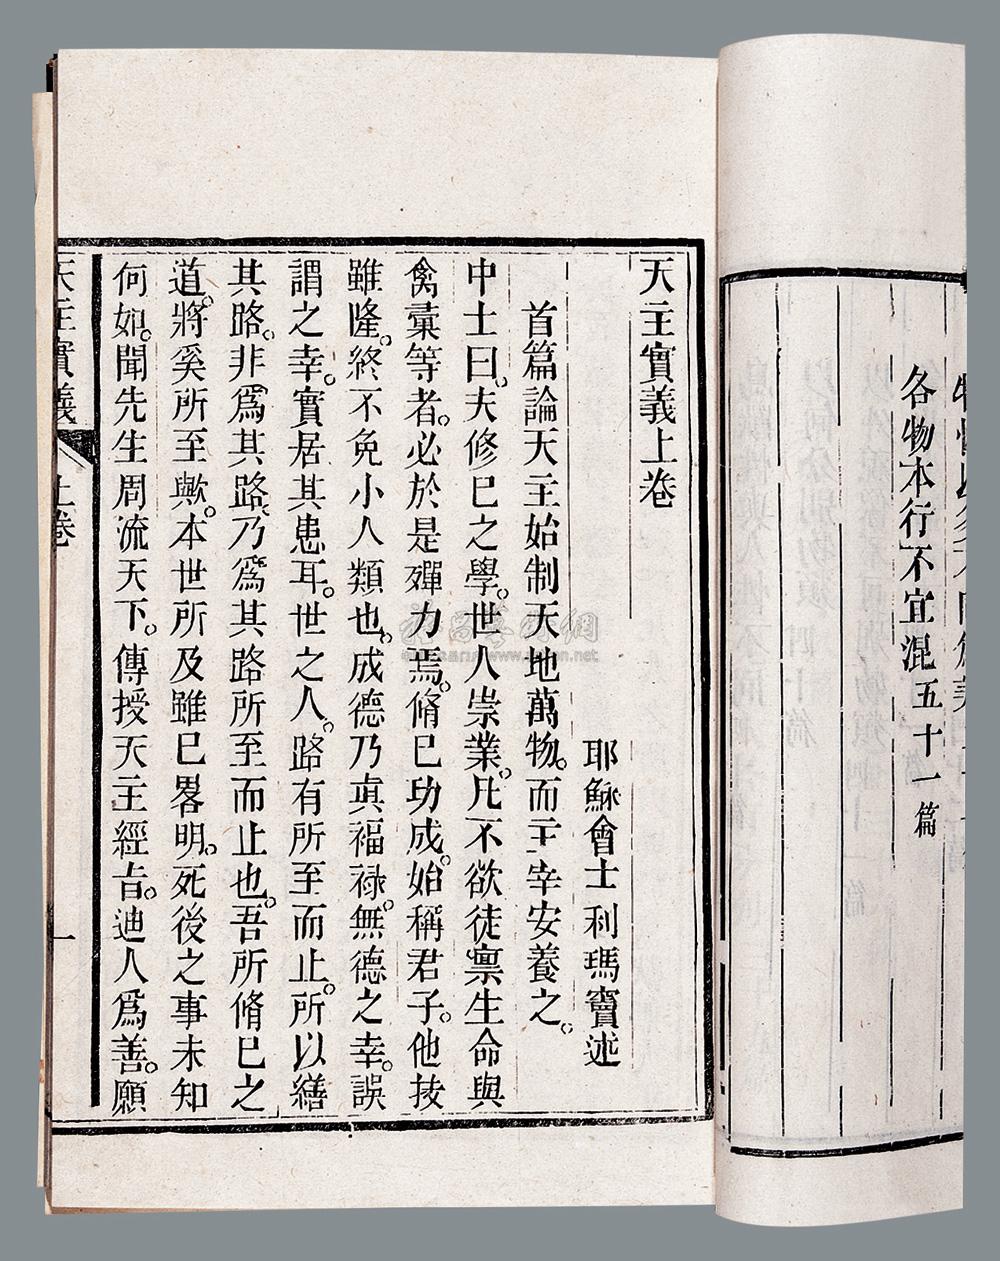 各物本行不宜混五十一篇
天主實義上卷
耶穌會士利瑪竇述
首篇論天主始制天地萬物。而主宰安養之。
中士曰。夫修己之學。世人崇業。凡不欲徒禀生命與
禽彙等者。必於是殫力焉。脩己功成。始稱君子。他技
雖隆。終不免小人類也。成德乃眞福祿。無德之幸。誤
謂之幸。實居其患耳。世之人。路有所至而止。所以繕
其路。非爲其路。乃爲其路所至而止也。吾所脩己之
道。將奚所至歟。本世所及雖已畧明。死後之事未知
何如。聞先生周流天下。傳授天主經旨。迪人爲善。願
天主實義 上卷 一